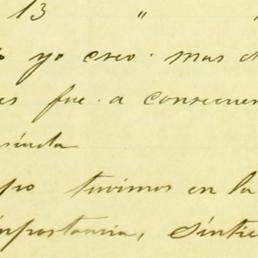 13 " "
yo creo. mas d
es fue. a consecuen
po tuvimos en la
importancia, sintie